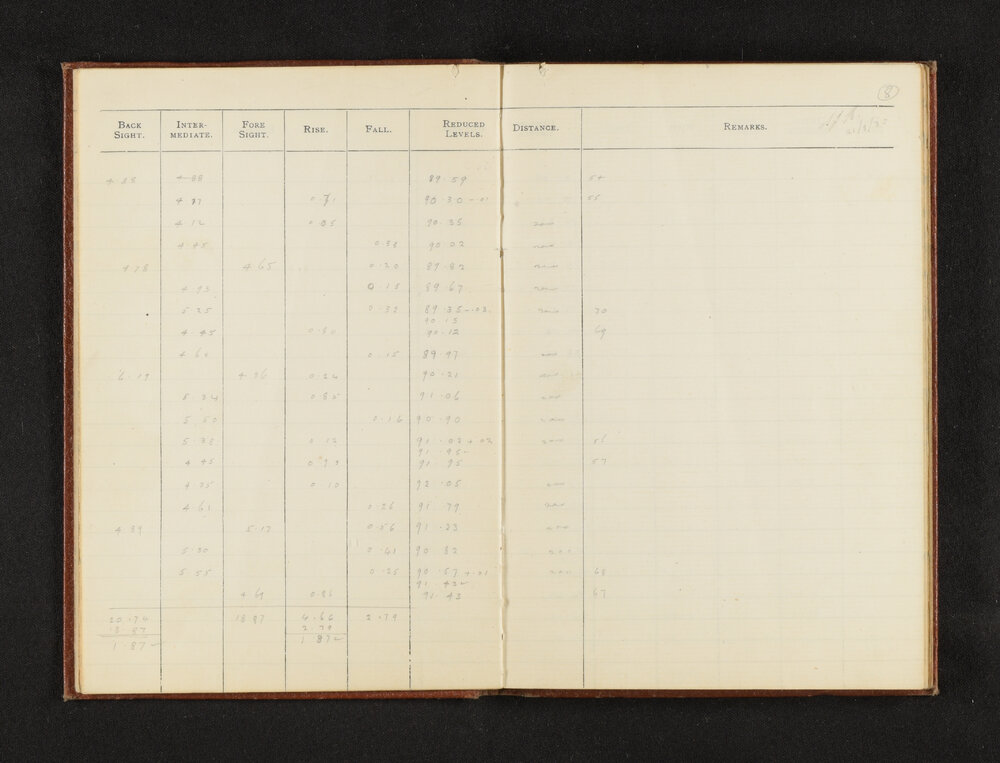 8
BACK SIGHT. INTER-MEDIATE. FORE SIGHT. RISE. FALL. REDUCED LEVELS. DISTANCE. REMARKS.
4.88 4.88 89.59 54
4.17 0.71 90.30 -.01 55
4.12 0.05 90.35 200
4.45 0.33 90.02 200
4.78 4.65 0.20 89.82 200
4.93 0.15 89.67 200
5.25 0.32 89.35 -.03 200 70
90.15
4.45 0.80 90.12 69
4.60 0.15 89.97 200
6.19 4.36 0.24 90.21 200
5.34 0.85 91.06 200
5.50 0.16 90.90 200
5.38 0.12 91.02 +.02 200 56
91.95
4.45 0.93 91.95 57
4.35 0.10 92.05 200
4.61 0.26 91.79 200
4.89 5.17 0.56 91.23 200
5.30 0.41 90.82 200
5.55 0.25 90.57 +.01 200 68
91.42
4.69 0.86 91.43 67
20.74 18.87 4.66 2.79
18.87 2.79
1.87 1.87